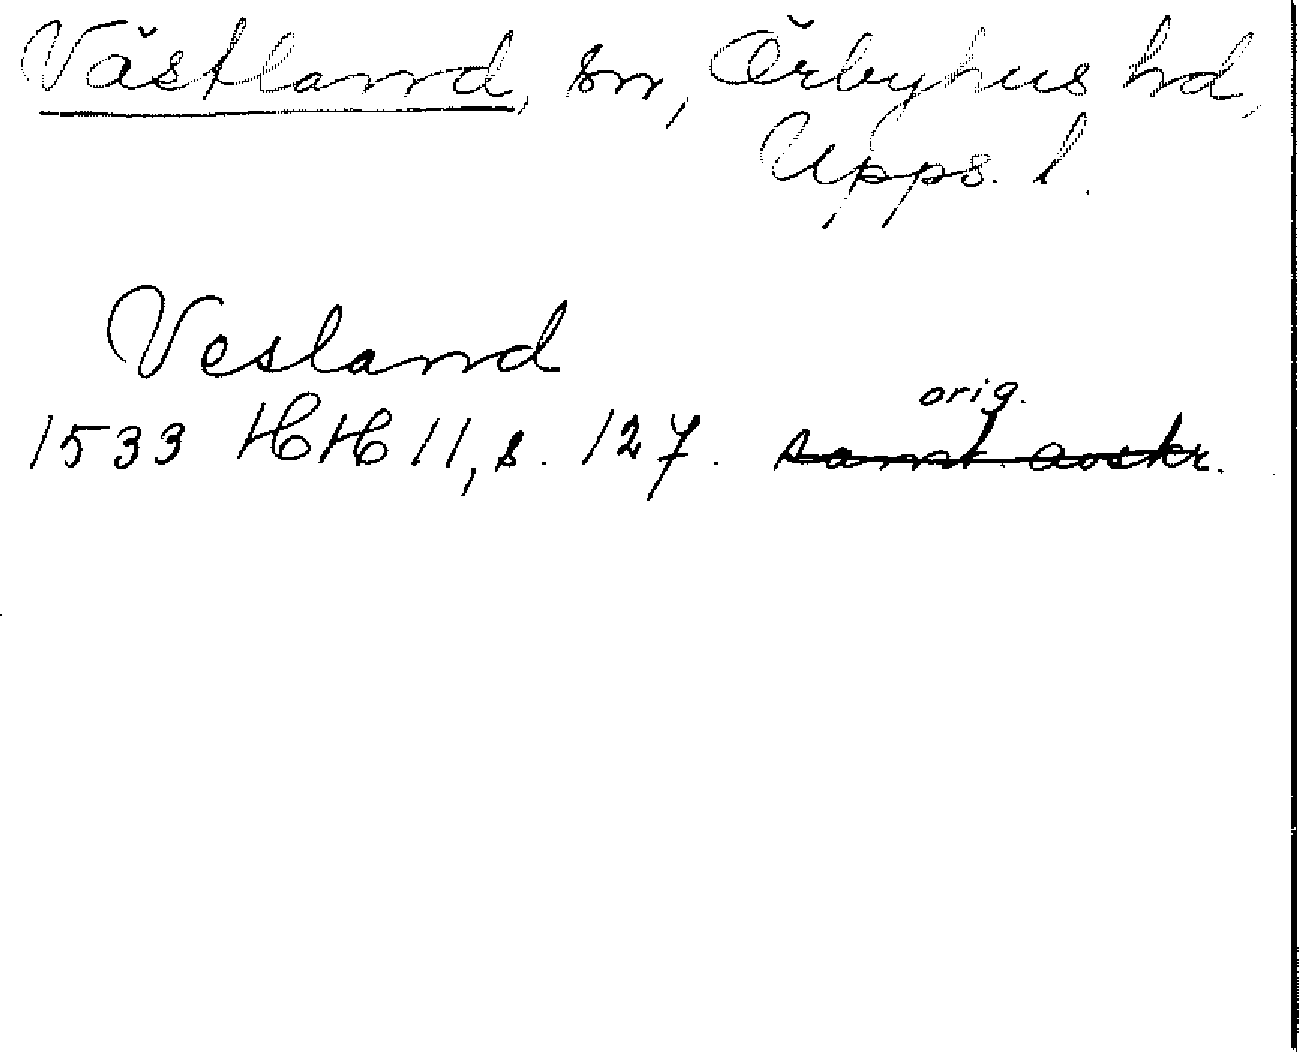 Västland, sn, Örbyhus hd,
Upps. l.
Vesland
orig.
1533 HH 11, s. 127. samt. avskr.